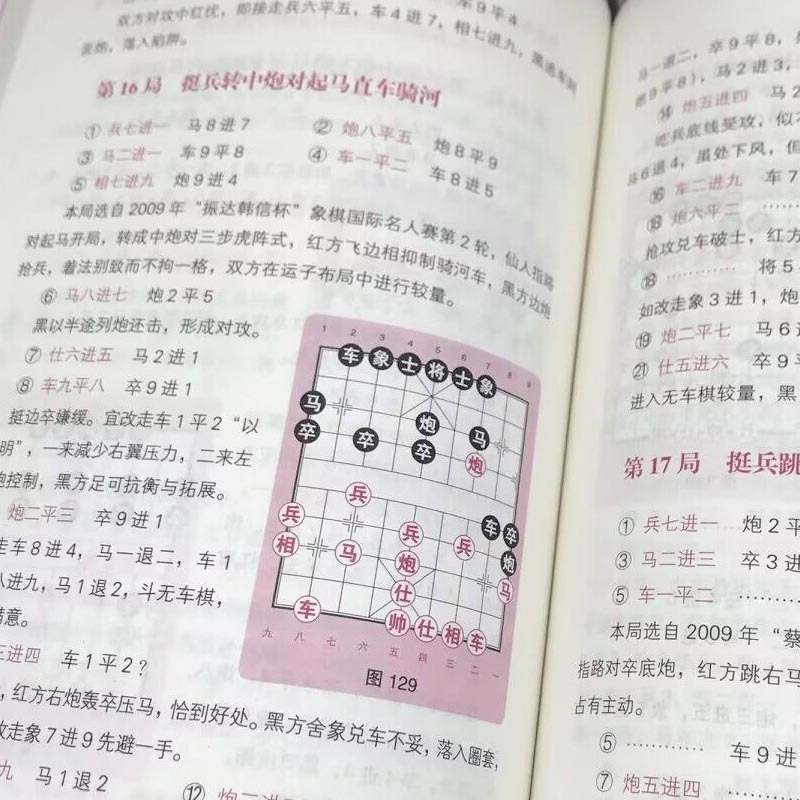 车9平4
双方对攻中红优，即接走兵六平五，车4进7，相七进九，黑
丢炮，落入陷阱。
第16局 挺兵转中炮对起马直车骑河
① 兵七进一 马8进7 ② 炮八平五 炮8平9
③ 马二进一 车9平8 ④ 车一平二 车8进5
⑤ 相七进九 炮9进4
本局选自2009年“振达韩信杯”象棋国际名人赛第2轮，仙人指路
对起马开局，转成中炮对三步虎阵式，红方飞边相抑制骑河车，黑方边炮
抢兵，着法别致而不拘一格，双方在运子布局中进行较量。
⑥ 马八进七 炮2平5
黑以半途列炮还击，形成对攻。
⑦ 仕六进五 马2进1
⑧ 车九平八 卒9进1
挺边卒嫌缓。宜改走车1平2“以
明”，一来减少右翼压力，二来左
炮控制，黑方足可抗衡与拓展。
炮二平三 卒9进1
走车8进4，马一退二，车1
八进九，马1退2，斗无车棋，
满意。
三进四 车1平2？
，红方右炮轰卒压马，恰到好处。黑方舍象兑车不妥，落入圈套，
改走象7进9先避一手。
九 马1退2
⑫ 炮三进
1 2 3 4 5 6 7 8 9
车 象 士 将 士 象
马 炮 马
卒 卒 卒 炮
兵
兵 兵 兵 车 卒
相 马 炮 炮
仕 马
车 帅 仕 相 车
九 八 七 六 五 四 三 二 一
图 129
马一退二，卒9平8，
9平8），马2进3，
⑭ 炮五进四 马2
吃兵底线受攻，似
马6退4，虽处下风，但
⑯ 车二进九 车7
⑱ 炮六平三 ………
抢攻兑车破士，红方
⑱ ………… 将5
如改走象3进1，炮
⑲ 炮二平七 马6
㉑ 仕五进六 卒9
进入无车棋较量，黑
第17局 挺兵跳
① 兵七进一 炮2平
③ 马二进三 卒3进
⑤ 车一平二 …………
本局选自2009年“蔡
指路对卒底炮，红方跳右马
占有主动。
⑤ ………… 车9进
⑦ 炮五进四 …………